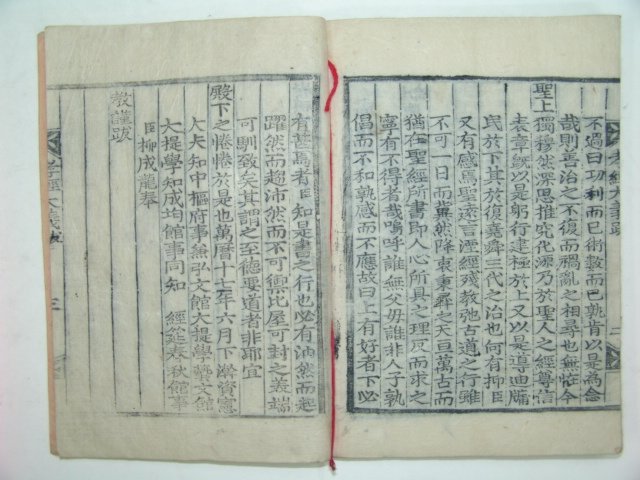 孝經大義跋
不過曰功利而已術數而已孰肯以是爲念
哉則善治之不復而禍亂之相尋也無怪今
聖上
獨穆然深思推究化源乃於聖人之經尊信
表章旣以是躬行建極於上又以是導迪牖
民於下其於復堯舜三代之治也何有抑臣
又有感焉聖遠言湮經殘教弛古道之行雖
不可一日而冀然降衷秉彝之天亘萬古而
猶在聖經所書即人心所具之理反而求之
寧有不得者哉嗚呼誰無父母誰非人子孰
倡而不和孰感而不應故曰上有好者下必
有甚焉者臣知是書之行也必有油然而起
躍然而趨沛然而不可禦比屋可封之美端
可馴致矣其謂之至德要道者非耶宜
殿下之惓惓於是也萬曆十七年六月下澣資憲
大夫知中樞府事兼弘文館大提學藝文館
大提學知成均館事同知 經筵春秋館事
臣柳成龍奉
教謹跋
孝經大義跋